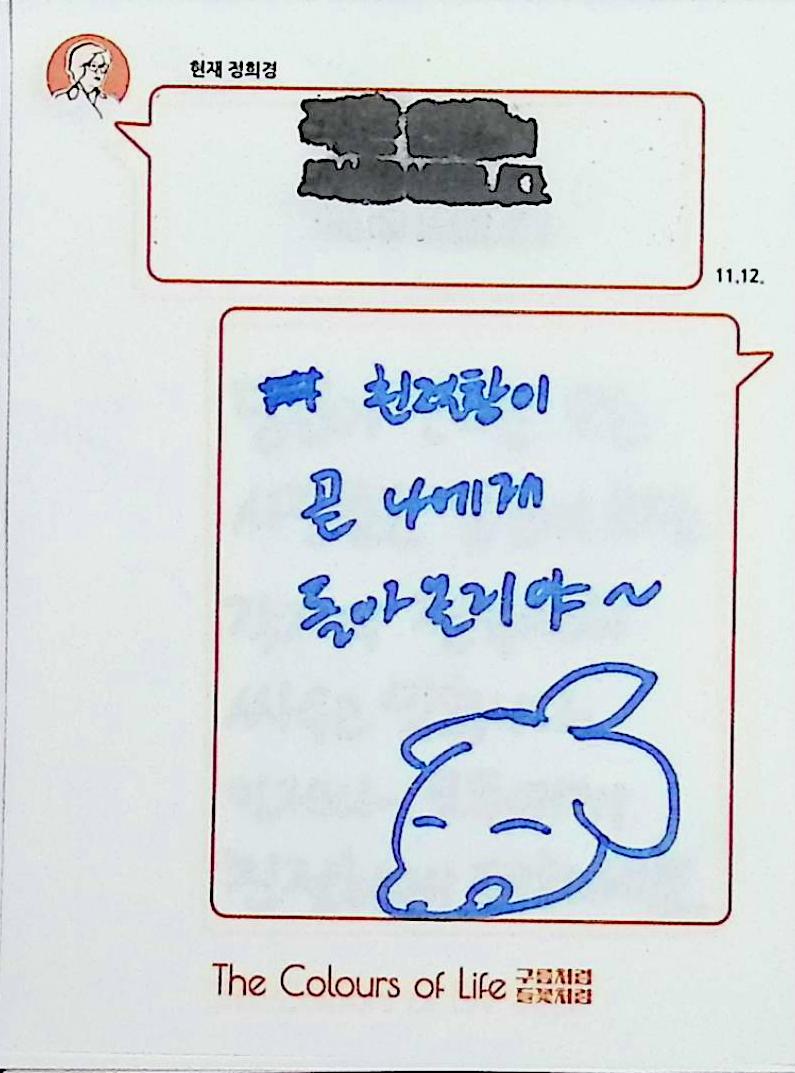 현재 정희경
11.12.
친절함이
곧 나에게
돌아올거야~
The Colours of Life 구름처럼
들꽃처럼